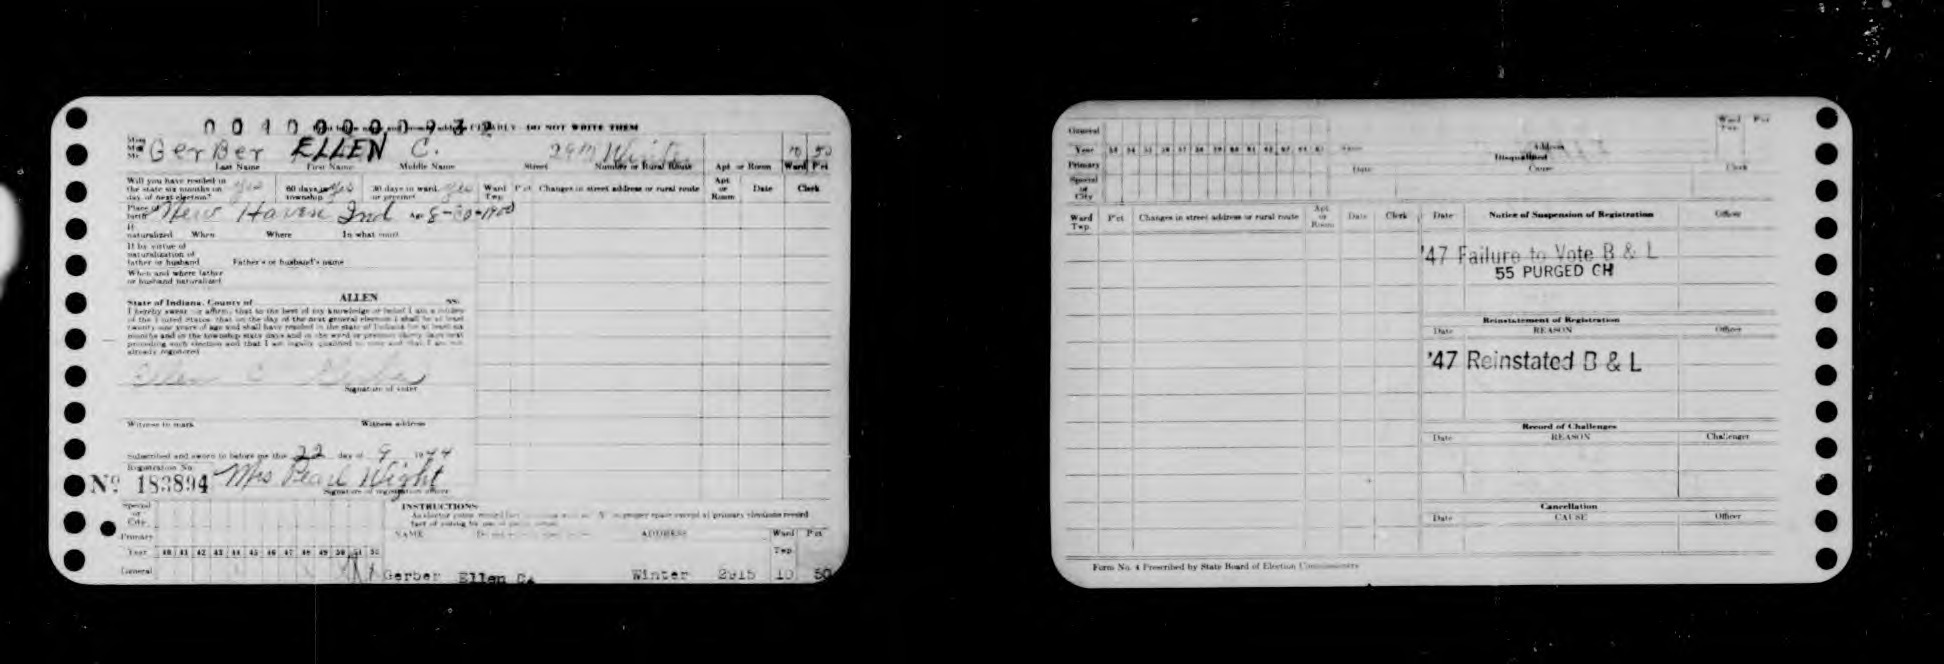 0010000093
CLEARLY - DO NOT WRITE THEM
Miss
Mrs
Mr.
GerBer ELLEN C. Winter 10 50
Last Name First Name Middle Name Street Number or Rural Route Apt or Room Ward P'ct
Will you have resided in
the state six months on
day of next election? Yes 60 days in
township Yes 30 days in ward
or precinct Yes
Ward
Twp. P'ct Changes in street address or rural route Apt
or
Room Date Clerk
Place of
birth New Haven Ind
If
naturalized When Where In what court
If by virtue of
naturalization of
father or husband Father's or husband's name
When and where father
or husband naturalized
State of Indiana, County of ALLEN SS:
I hereby swear or affirm, that to the best of my knowledge or belief I am a citizen
of the United States, that on the day of the next general election I shall be at least
twenty-one years of age and shall have resided in the state of Indiana for at least six
months and in the township sixty days and in the ward or precinct thirty days next
preceding such election and that I am legally qualified to vote and that I am not
already registered
Ellen C Gerber
Signature of voter
Witness to mark Witness address
Subscribed and sworn to before me this 22 day of 9 1944
Registration No.
No 183894 Mrs Pearl Wight
Signature of registration officer
Special
or
City
Primary
Year 40 41 42 43 44 45 46 47 48 49 50 51 52
General
INSTRUCTIONS
proper space except at primary elections record
fact of voting by use of
NAME ADDRESS Ward
Twp. P'ct
Gerber Ellen C. Winter 2915 10 50
General
Year 53 54 55 56 57 58 59 60 61 62 63 64 65
Primary
Special
or
City
Name Address Ward
Twp. P'ct
Disqualified
Date Cause Clerk
Ward
Twp. P'ct Changes in street address or rural route Apt.
or
Room Date Clerk
Date Notice of Suspension of Registration Officer
'47 Failure to Vote B & L
55 PURGED CH
Reinstatement of Registration
Date REASON Officer
'47 Reinstated B & L
Record of Challenges
Date REASON Challenger
Cancellation
Date CAUSE Officer
Form No. 4 Prescribed by State Board of Election Commissioners